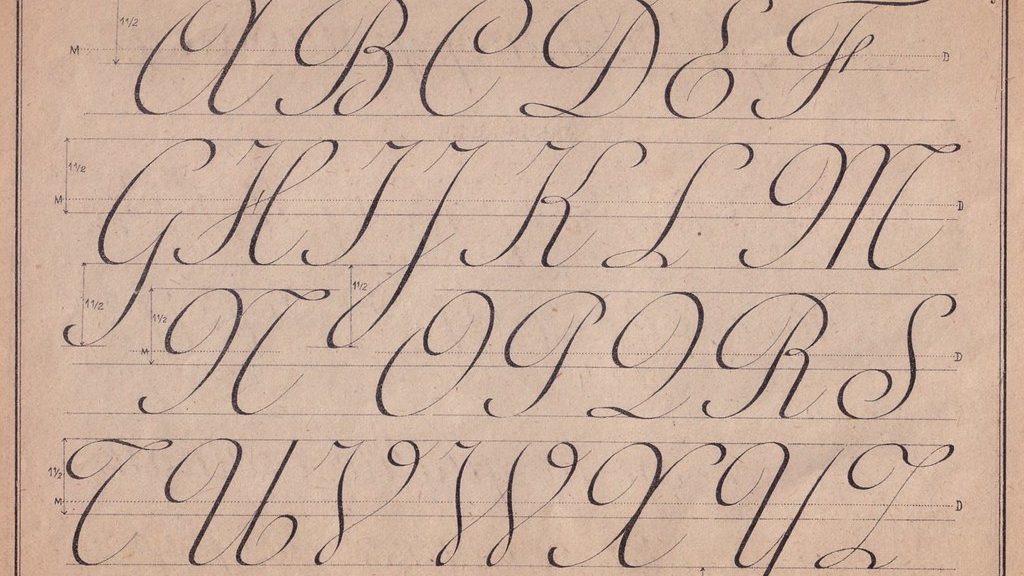 1 1/2 A B C D E F
M D
1 1/2 G H I J K L M
M D
1 1/2 1 1/2 1 1/2 N O P Q R S
M D
1 1/2 T U V W X Y Z
M D